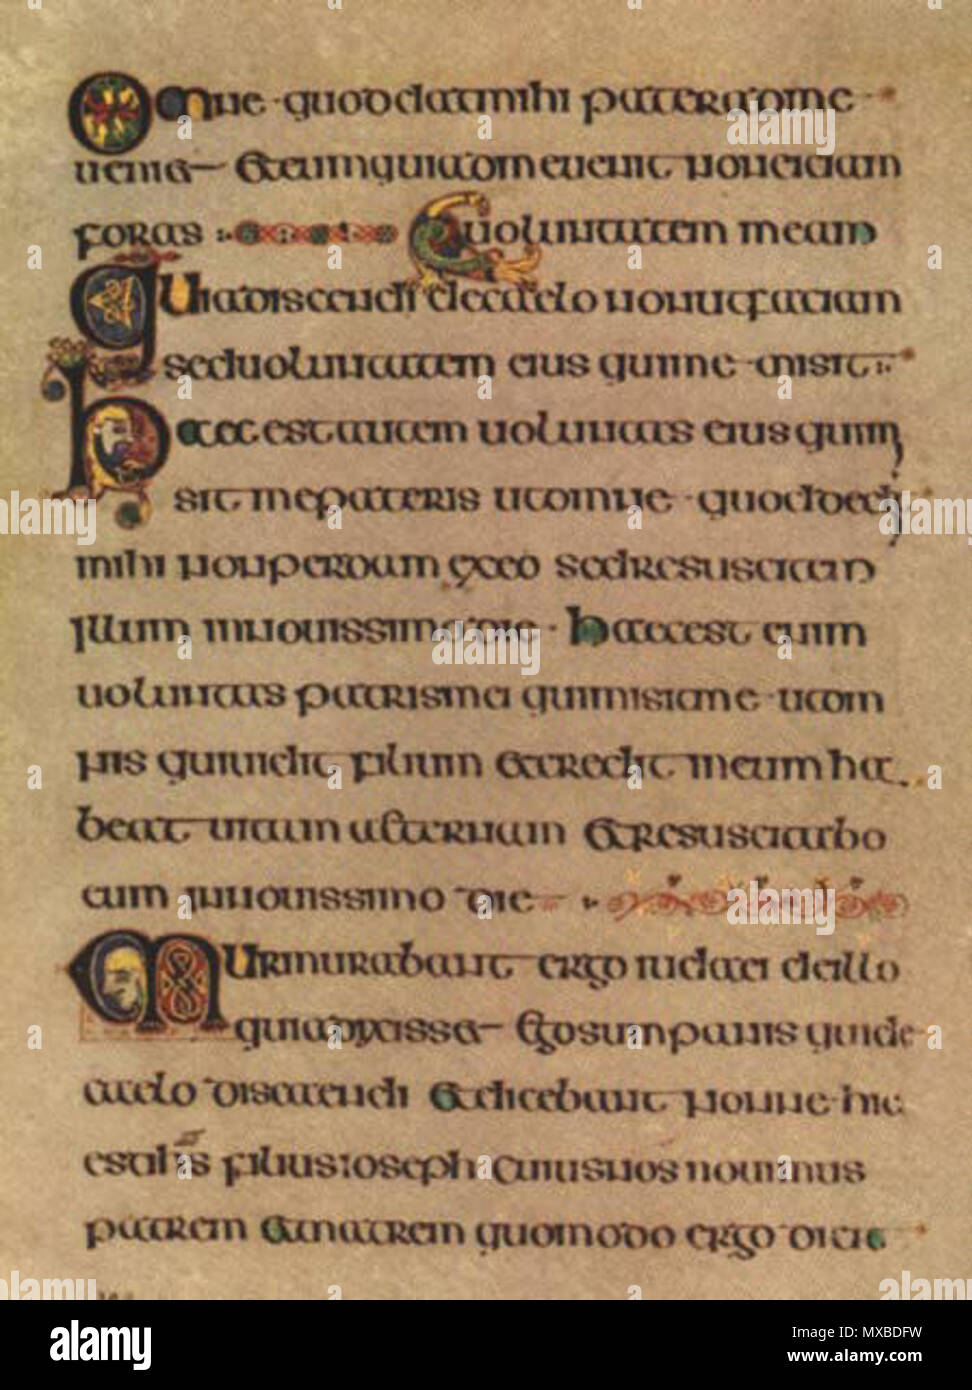 Omne quod dat mihi pater ad me
veniet Et eum qui ad me venit non eiciam
foras Et voluntatem meam
Quia discendi de caelo non ut faciam
sed voluntatem eius qui me misit
haec est autem voluntas eius qui mi
sit me pateris ut omne quod dedi
mihi non perdam ex eo sed resuscitem
illum in novissimo die haec est enim
voluntas patris mei qui misit me ut om
nis qui videt filium et credit in eum ha
beat vitam aeternam et resuscitabo
eum in novissimo die
Murmurabant ergo iudaei de illo
quia dixisset Ego sum panis qui de
caelo discendi et dicebant nonne hic
est ihs filius ioseph cuius nos novimus
patrem et matrem quomodo ergo dicit
a alamy
alamy
Image ID: MXBDFW
www.alamy.com